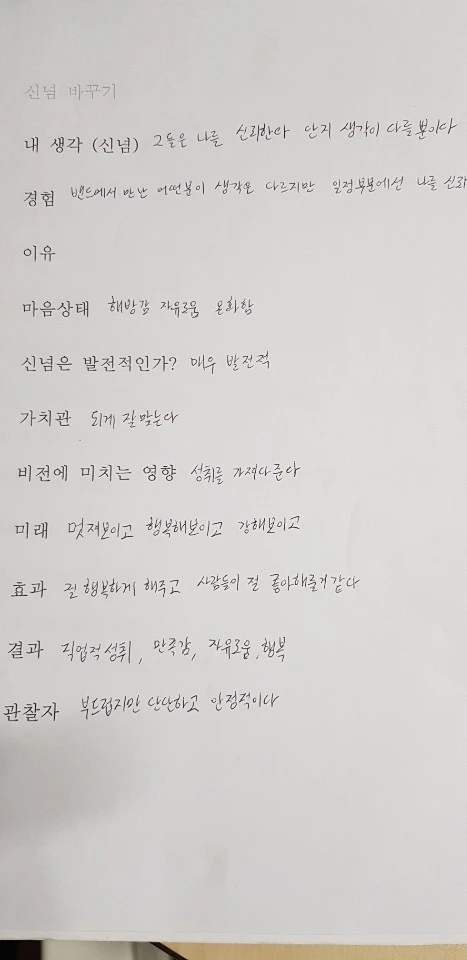 신념 바꾸기
내 생각 (신념) 그들은 나를 신뢰한다 단지 생각이 다를뿐이다
경험 밴드에서 만난 어떤분이 생각은 다르지만 일정부분에선 나를 신뢰
이유
마음상태 해방감 자유로움 온화함
신념은 발전적인가? 매우 발전적
가치관 되게 잘맞는다
비전에 미치는 영향 성취를 가져다준다
미래 멋져보이고 행복해보이고 강해보이고
효과 절 행복하게 해주고 사람들이 절 좋아해줄거같다
결과 직업적성취, 만족감, 자유로움, 행복
관찰자 부드럽지만 단단하고 안정적이다